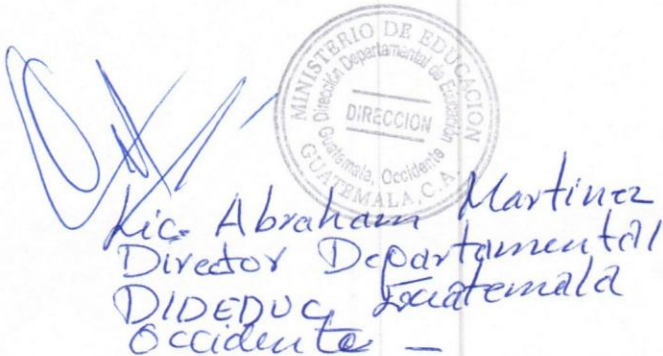 MINISTERIO DE EDUCACION
Dirección Departamental de Educación
DIRECCION
Guatemala, Occidente
GUATEMALA, C.A.
Lic. Abraham Martinez
Director Departamental
DIDEDUC, Guatemala
Occidente -